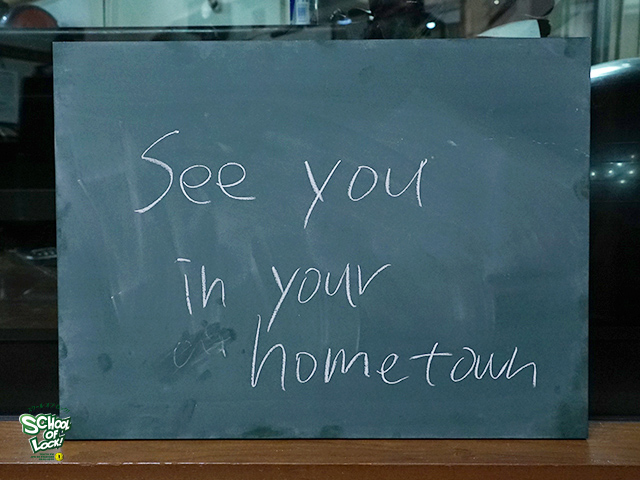 See you
in your
hometown
SCHOOL
OF
LOCK!